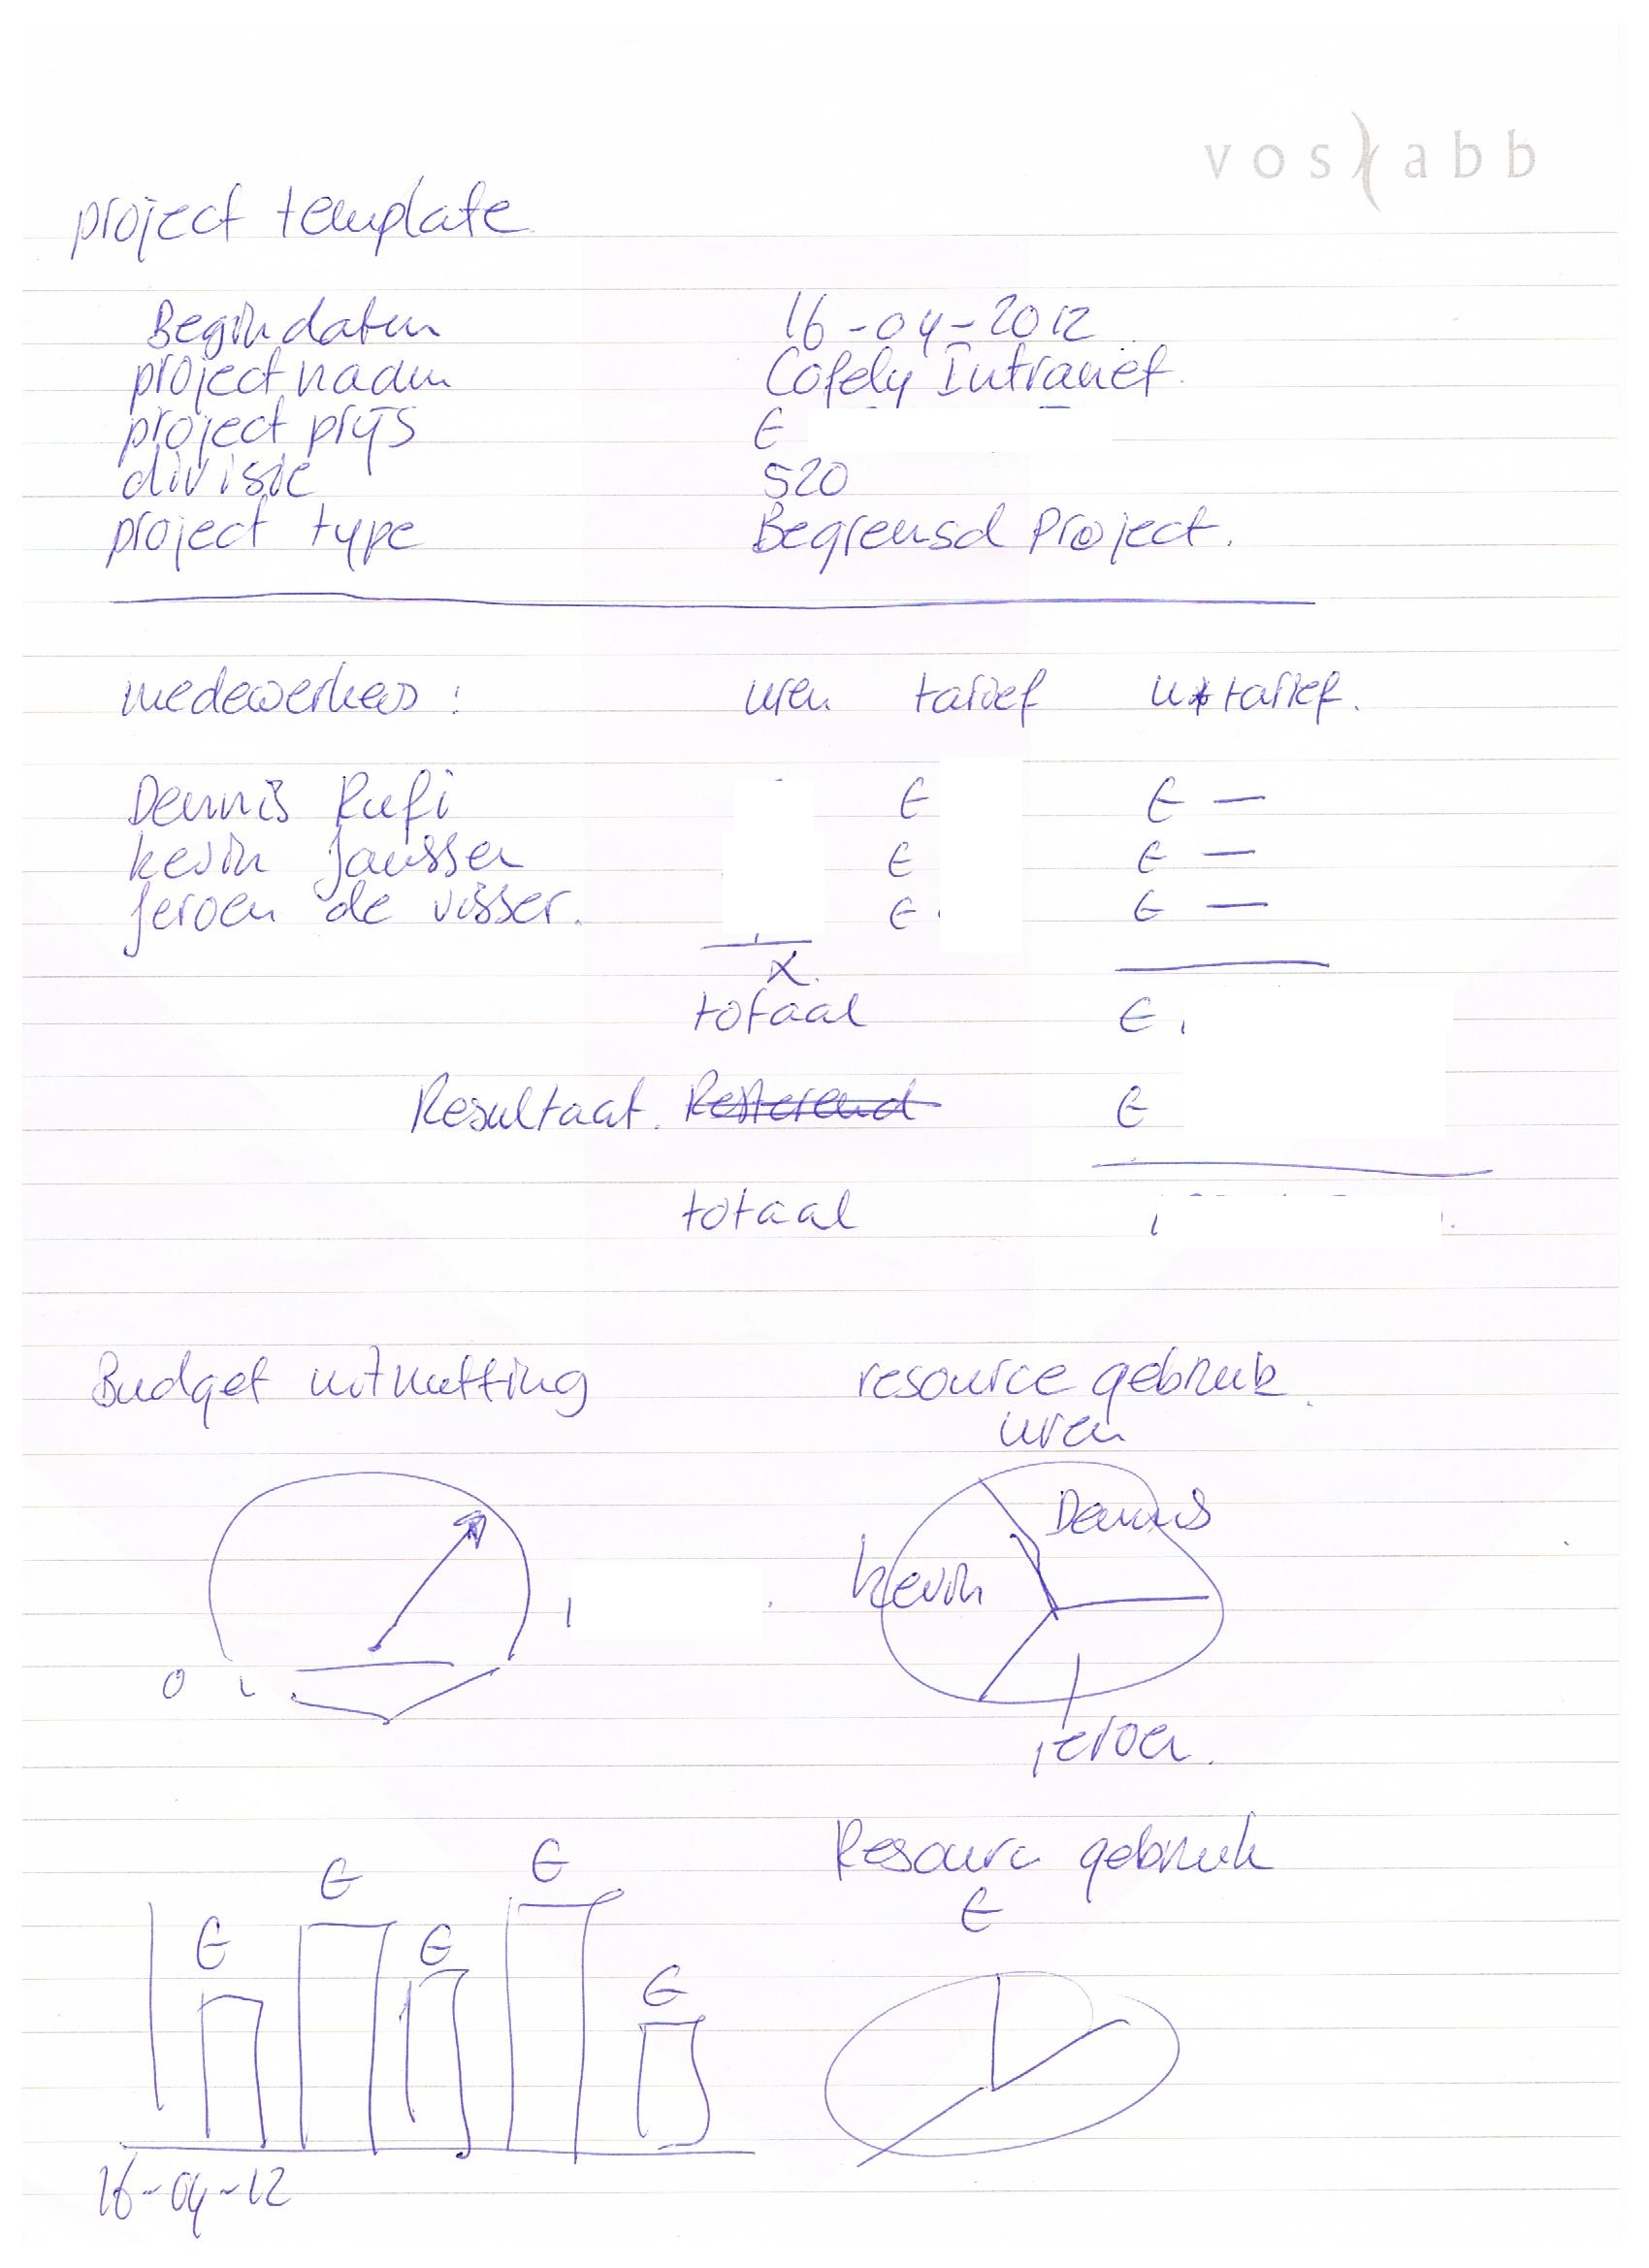 vos abb
project template
Begindatum 16-04-2012
projectnaam Cofely Intranet.
project prijs €
divisie 520
project type Begrensd Project.
medewerkers: uren tarief u*tarief.
Dennis Rufi € € —
kevin Janssen € € —
Jeroen de visser. € € —
X.
totaal €
Resultaat. Resterend €
totaal
Budget uitnutting resource gebruik.
uren
Dennis
kevin
0
jeroen.
Resourc gebruik
€
€ € € € €
16-04-12